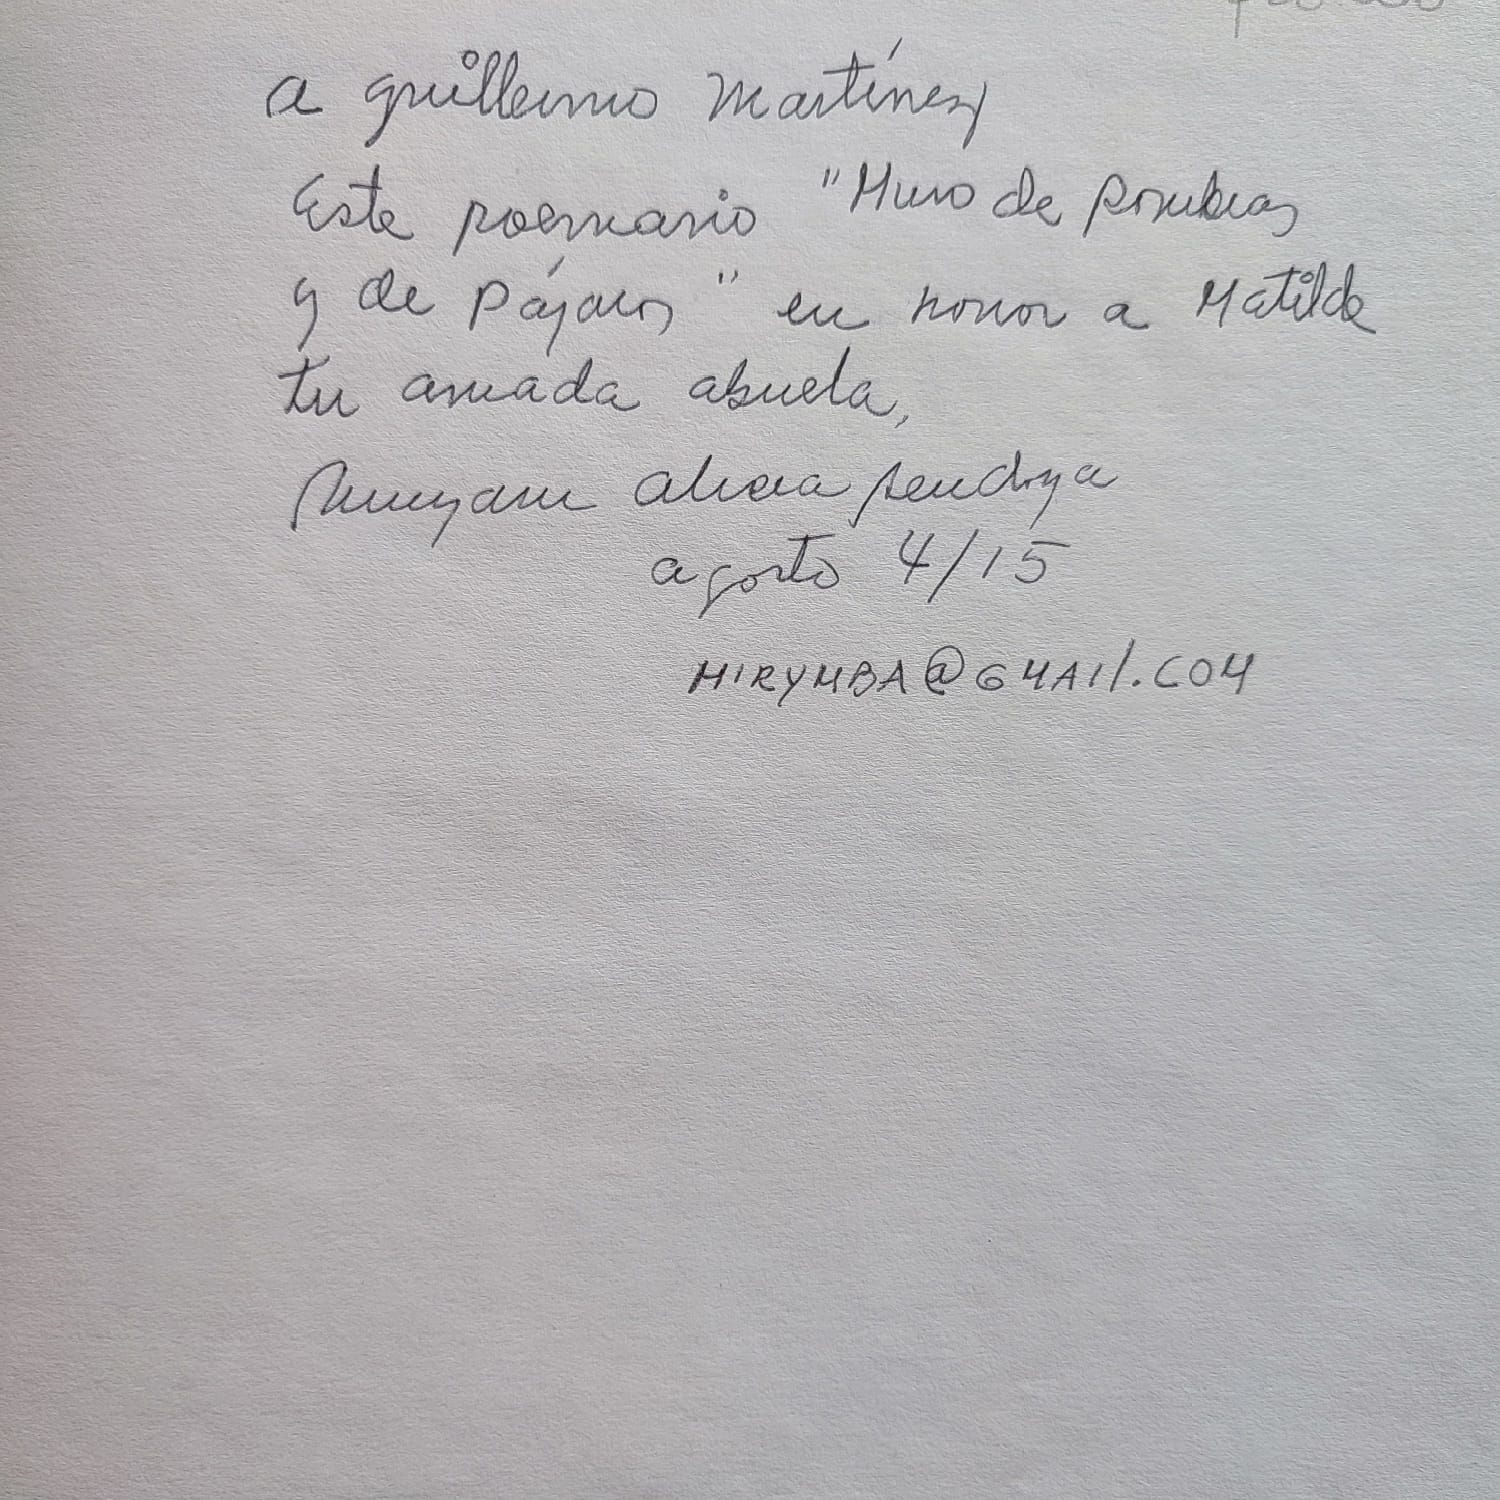 a guillermo Martínez
Este poemario "Muro de sombras
y de Pájaros" en honor a Matilde
tu amada abuela,
Miryam alicia sendoya
agosto 4/15
MIRYMBA@GMAIL.COM